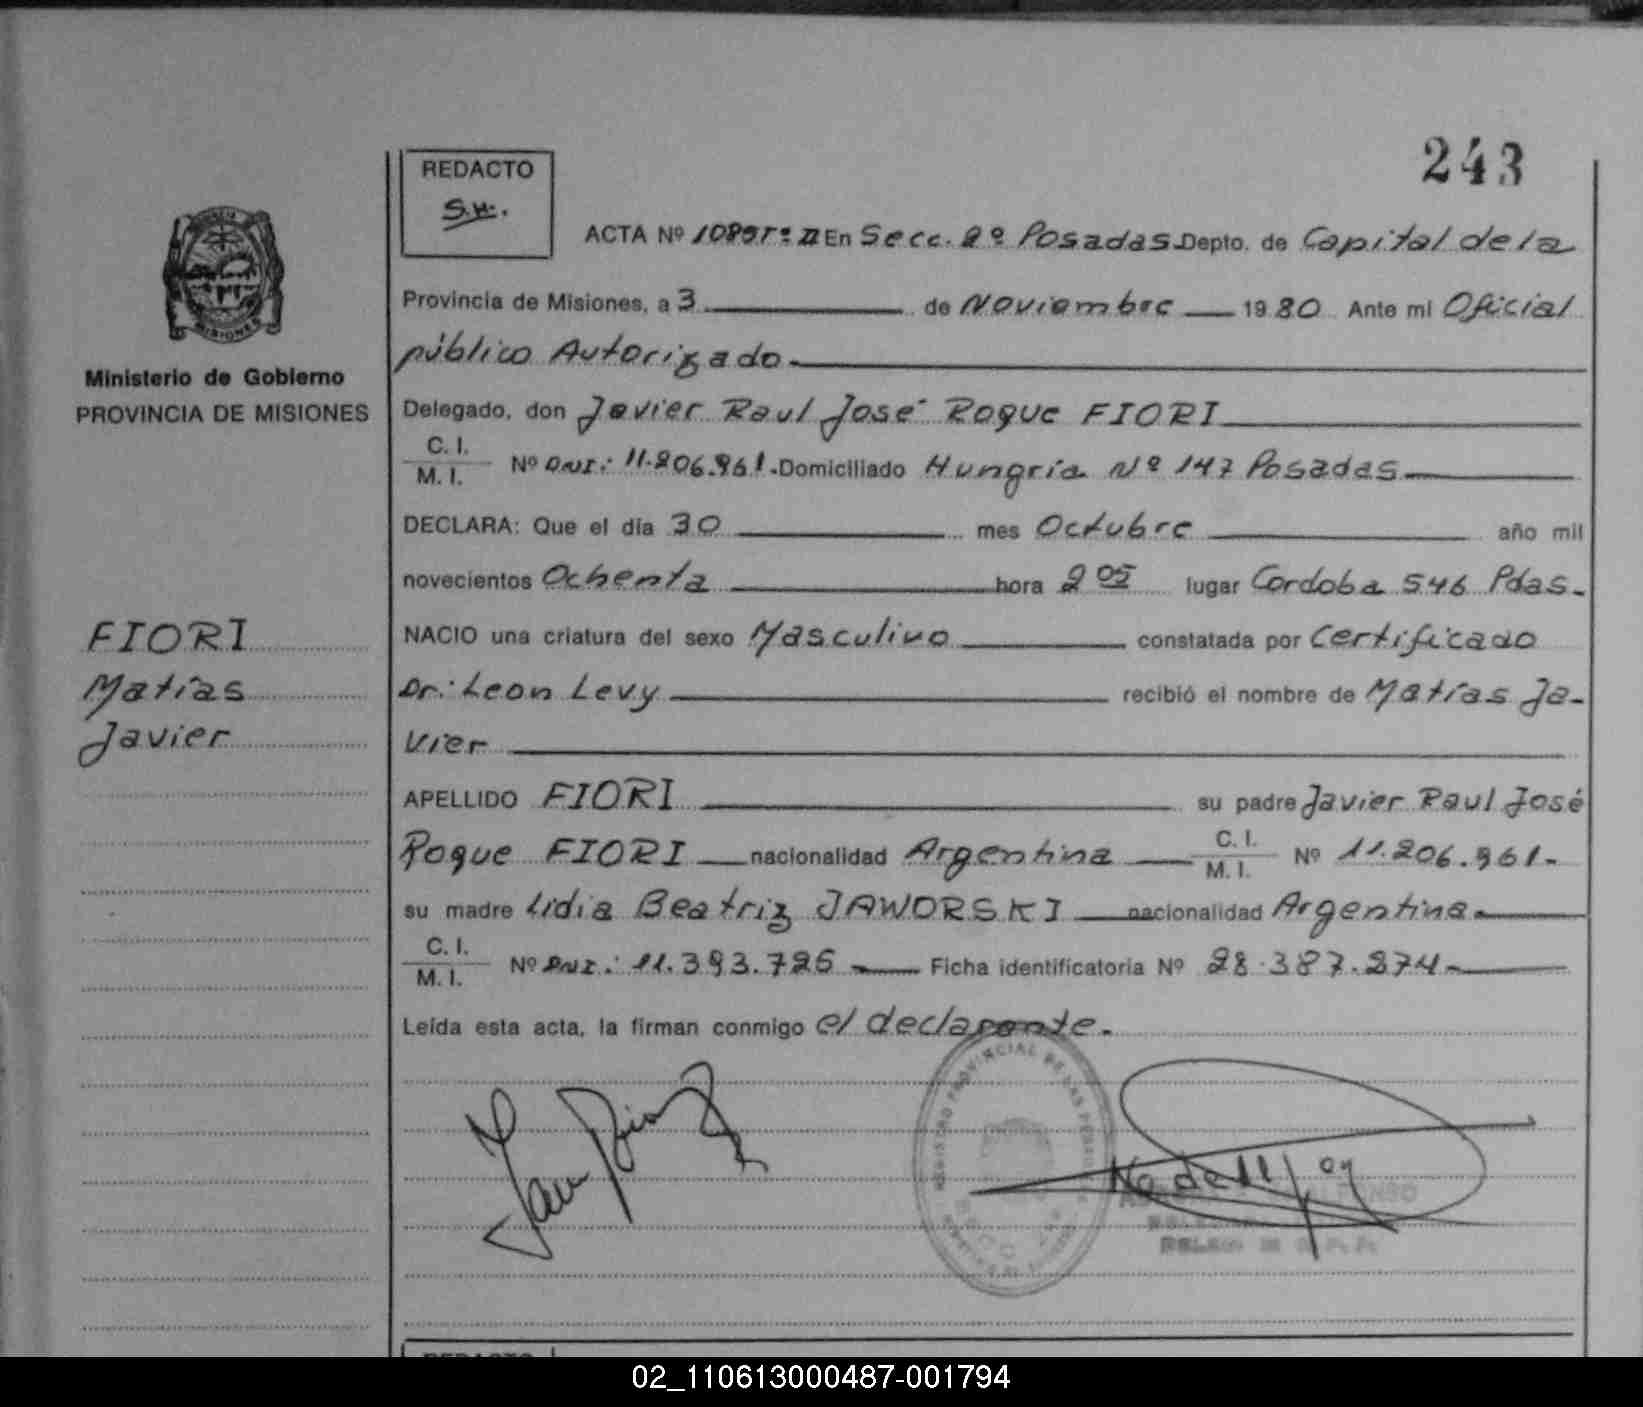 243
REDACTO
S.H.
ACTA Nº 1089 Tº II En Secc. 2º Posadas Depto. de Capital de la
Provincia de Misiones, a 3 de Noviembre 1980 Ante mi Oficial
público Autorizado
Ministerio de Gobierno
PROVINCIA DE MISIONES
Delegado, don Javier Raul José Roque FIORI
C. I.
M. I. Nº DNI: 11.206.961.- Domiciliado Hungría Nº 147 Posadas
DECLARA: Que el día 30 mes Octubre año mil
novecientos Ochenta hora 2 05 lugar Cordoba 546 Pdas.
NACIO una criatura del sexo Masculino constatada por Certificado
Dr: Leon Levy recibió el nombre de Matías Ja-
vier
FIORI
Matías
Javier
APELLIDO FIORI su padre Javier Raul José
Roque FIORI nacionalidad Argentina C. I.
M. I. Nº 11.206.961-
su madre Lidia Beatriz JAWORSKI nacionalidad Argentina
C. I.
M. I. Nº DNI: 11.393.726 Ficha identificatoria Nº 28.387.274-
Leída esta acta, la firman conmigo el declarante.
REGISTRO PROVINCIAL DE LAS PERSONAS
REDACTO
02_110613000487-001794